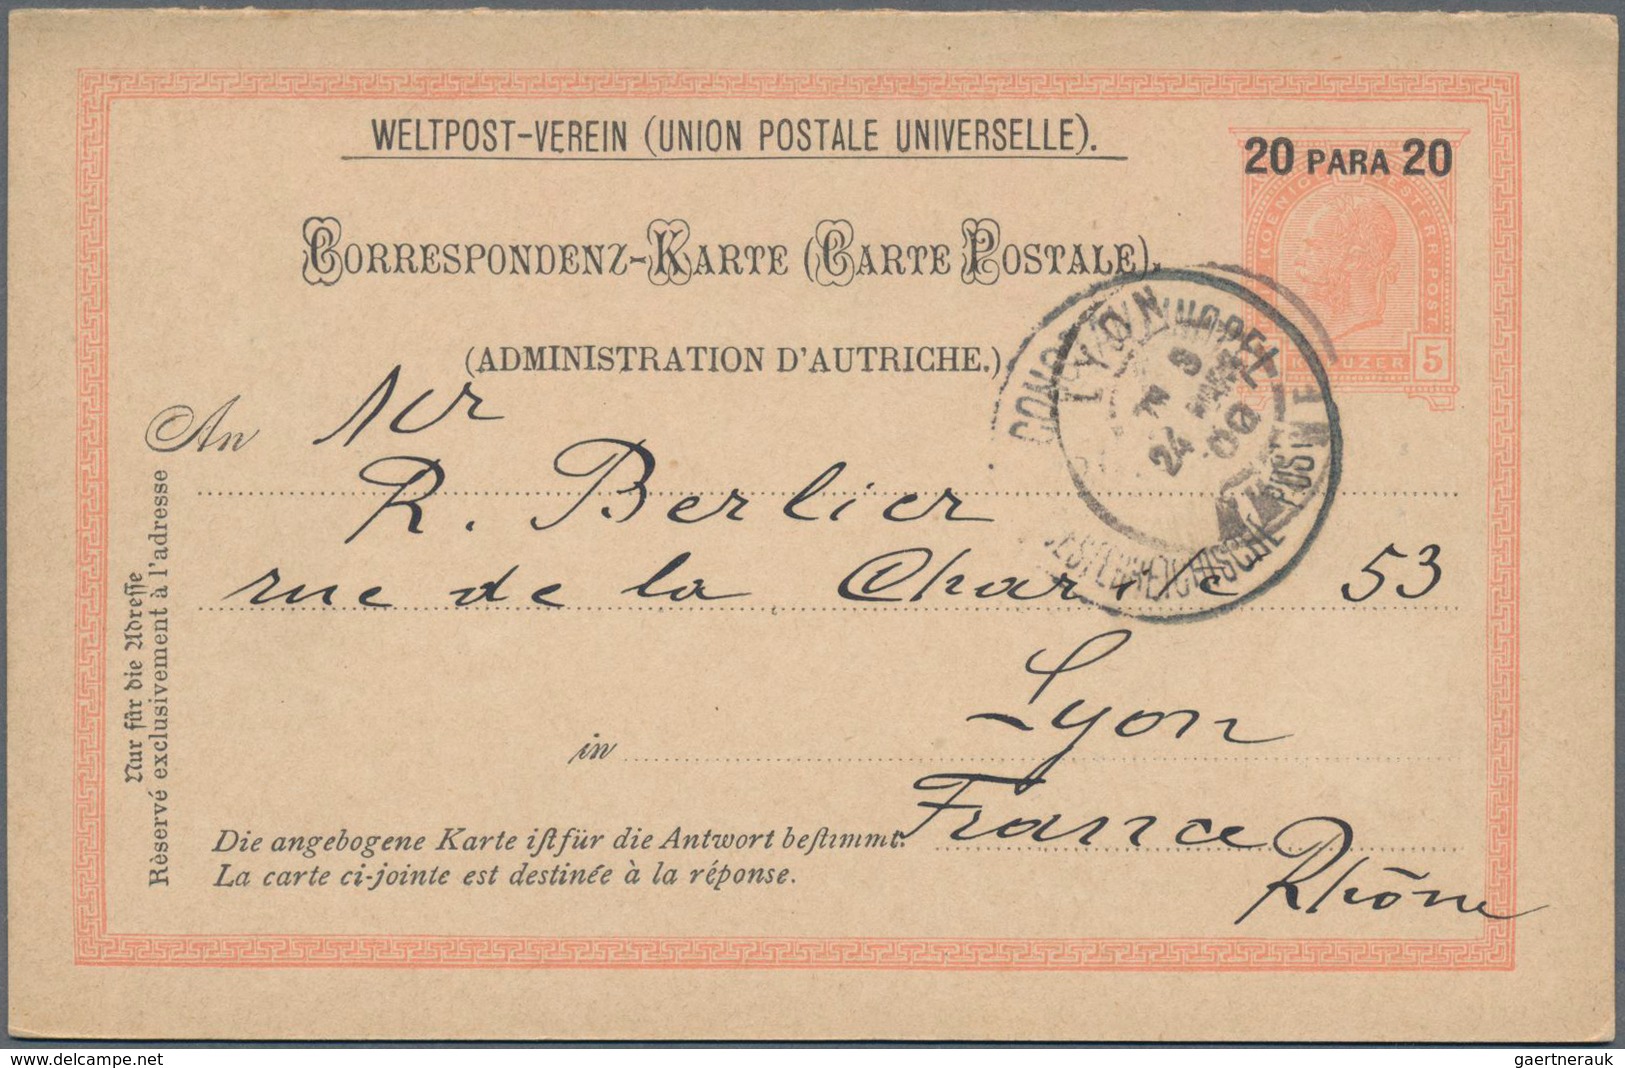 WELTPOST-VEREIN (UNION POSTALE UNIVERSELLE).
20 PARA 20
CORRESPONDENZ-KARTE (CARTE POSTALE).
(ADMINISTRATION D'AUTRICHE.)
KREUZER 5
LYON
24
00
OESTERREICHISCHE POST
An Mr
R. Berlier
rue de la Charité 53
in Lyon
France
Rhône
Nur für die Adresse
Rèservé exclusivement à l'adresse
Die angebogene Karte ist für die Antwort bestimmt.
La carte ci-jointe est destinée à la réponse.
delcampe.net
gaertnerauk